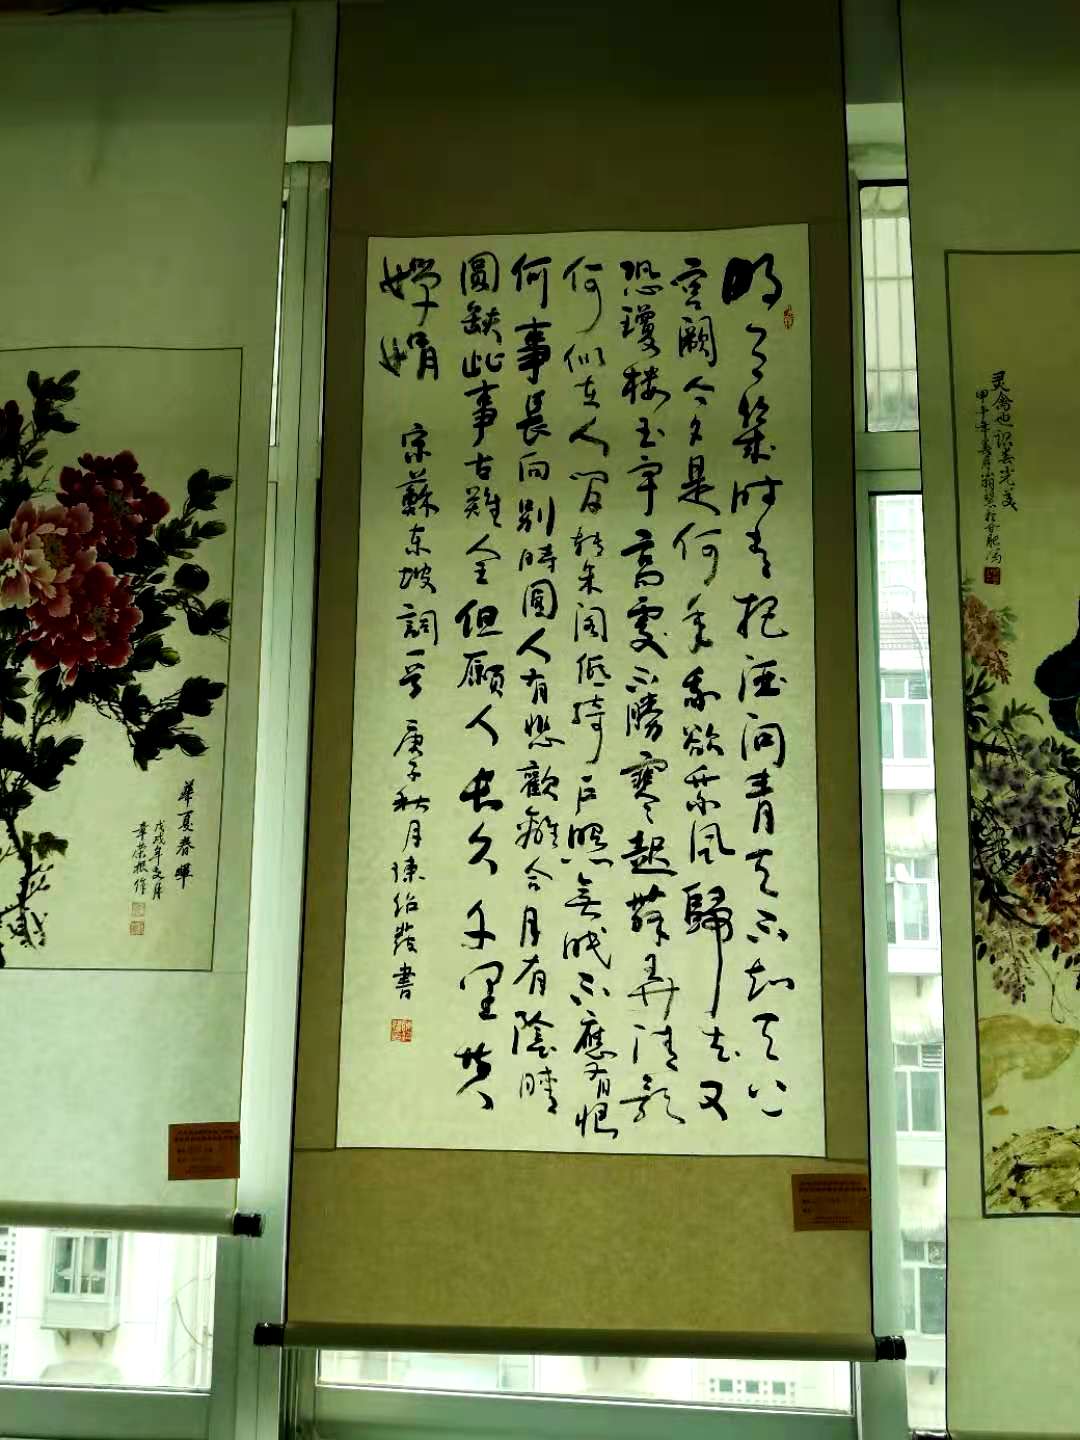 明月幾時有把酒問青天不知天上
宮闕今夕是何年我欲乘風歸去又
恐瓊楼玉宇高處不勝寒起舞弄清影
何似在人間轉朱阁低綺戶照無眠不應有恨
何事長向別時圓人有悲歡離合月有陰晴
圓缺此事古難全但願人長久千里共
嬋娟 宋蘇東坡詞一首 庚子秋月陳紹發書
華夏春暉
戊戌年 月
章荣振作
灵禽也识春光美
甲午年